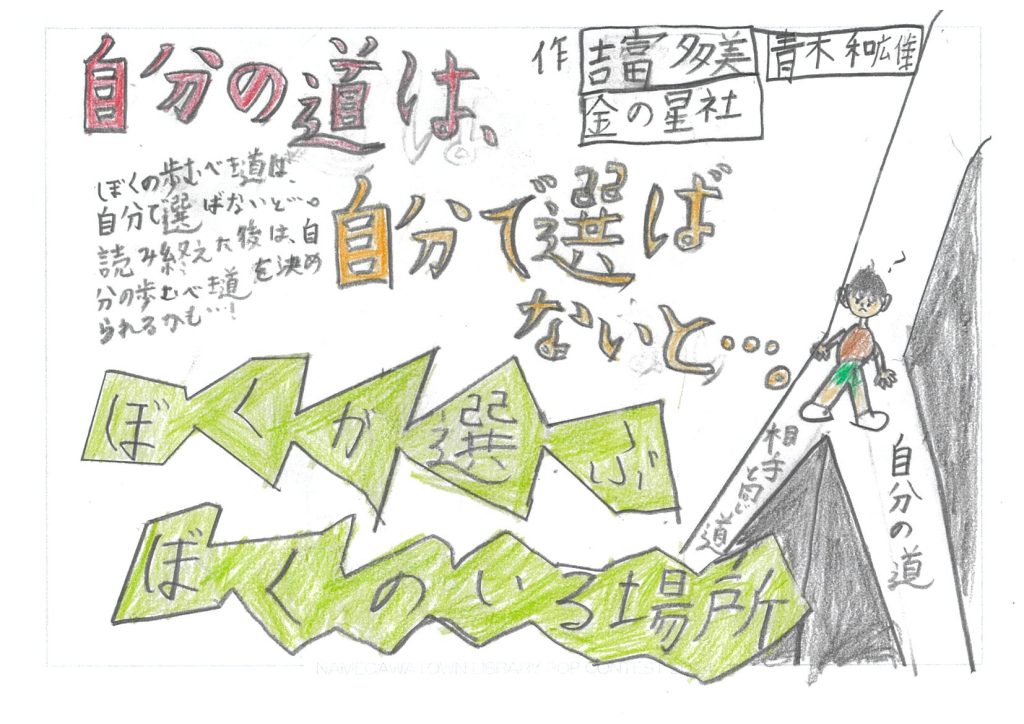 自分の道は、
作 吉富多美 青木和雄
金の星社
自分で選ば
ないと…。
ぼくの歩むべき道は、
自分で選ばないと…。
読み終えた後は、自
分の歩むべき道を決め
られるかも…!
ぼくが選ぶ
ぼくのいる場所
?
相手と同じ道
自分の道
NAMEGAWA TOWN LIBRARY POP CONTEST